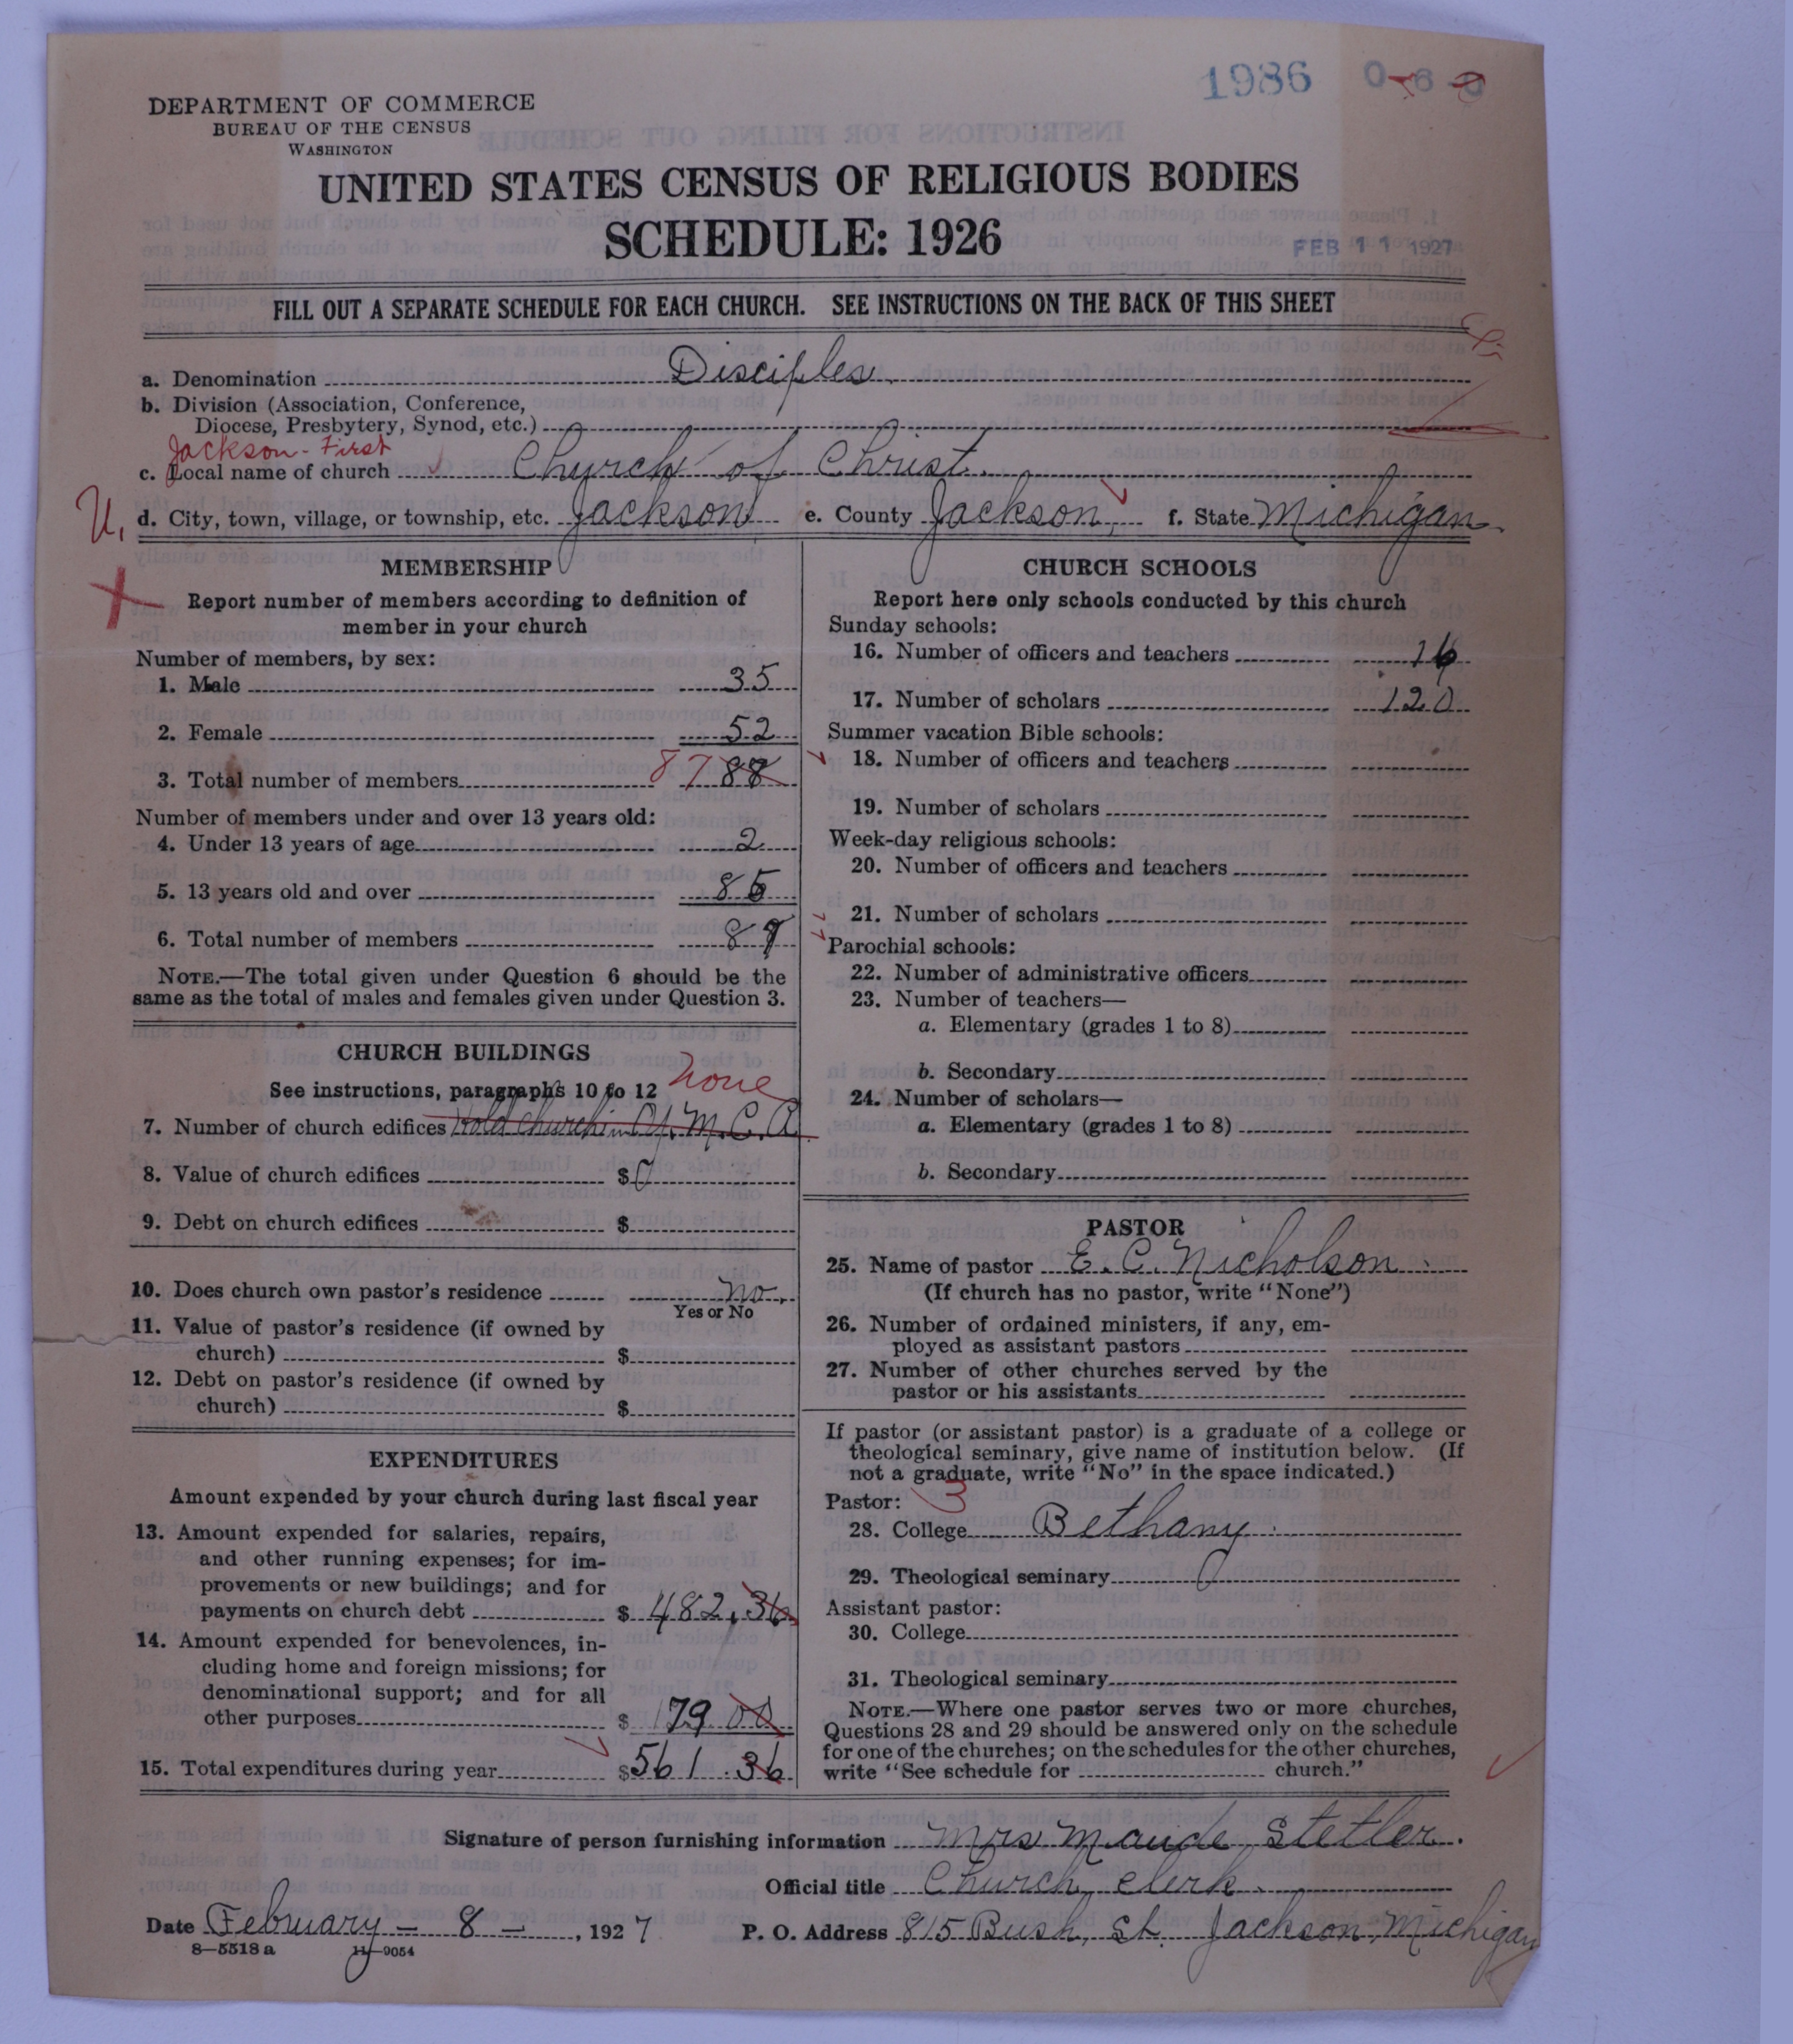 1986 0-6-0
DEPARTMENT OF COMMERCE
BUREAU OF THE CENSUS
WASHINGTON
UNITED STATES CENSUS OF RELIGIOUS BODIES
SCHEDULE: 1926
FEB 11 1927
FILL OUT A SEPARATE SCHEDULE FOR EACH CHURCH. SEE INSTRUCTIONS ON THE BACK OF THIS SHEET
a. Denomination Disciples
b. Division (Association, Conference,
Diocese, Presbytery, Synod, etc.)
Jackson - First
c. Local name of church Church of Christ
U. d. City, town, village, or township, etc. Jackson e. County Jackson f. State Michigan
MEMBERSHIP
Report number of members according to definition of
member in your church
Number of members, by sex:
1. Male 35
2. Female 52
3. Total number of members 87 88
Number of members under and over 13 years old:
4. Under 13 years of age 2
5. 13 years old and over 85
6. Total number of members 87
NOTE.—The total given under Question 6 should be the
same as the total of males and females given under Question 3.
CHURCH BUILDINGS
See instructions, paragraphs 10 to 12 none
7. Number of church edifices Hold church in Y. M. C. A
8. Value of church edifices $ 0
9. Debt on church edifices $
10. Does church own pastor's residence no.
Yes or No
11. Value of pastor's residence (if owned by
church) $
12. Debt on pastor's residence (if owned by
church) $
EXPENDITURES
Amount expended by your church during last fiscal year
13. Amount expended for salaries, repairs,
and other running expenses; for im-
provements or new buildings; and for
payments on church debt $ 482.36
14. Amount expended for benevolences, in-
cluding home and foreign missions; for
denominational support; and for all
other purposes $ 79 00
15. Total expenditures during year $ 561.36
CHURCH SCHOOLS
Report here only schools conducted by this church
Sunday schools:
16. Number of officers and teachers 16
17. Number of scholars 120
Summer vacation Bible schools:
18. Number of officers and teachers
19. Number of scholars
Week-day religious schools:
20. Number of officers and teachers
21. Number of scholars
Parochial schools:
22. Number of administrative officers
23. Number of teachers—
a. Elementary (grades 1 to 8)
b. Secondary
24. Number of scholars—
a. Elementary (grades 1 to 8)
b. Secondary
PASTOR
25. Name of pastor E. C. Nicholson
(If church has no pastor, write "None")
26. Number of ordained ministers, if any, em-
ployed as assistant pastors
27. Number of other churches served by the
pastor or his assistants
If pastor (or assistant pastor) is a graduate of a college or
theological seminary, give name of institution below. (If
not a graduate, write "No" in the space indicated.)
Pastor: 3
28. College Bethany
29. Theological seminary
Assistant pastor:
30. College
31. Theological seminary
NOTE.—Where one pastor serves two or more churches,
Questions 28 and 29 should be answered only on the schedule
for one of the churches; on the schedules for the other churches,
write "See schedule for church."
Signature of person furnishing information Mrs Maude Stetler.
Official title Church clerk.
Date February - 8 - , 1927 P. O. Address 815 Bush, St. Jackson, Michigan
8—5518a 11—9054